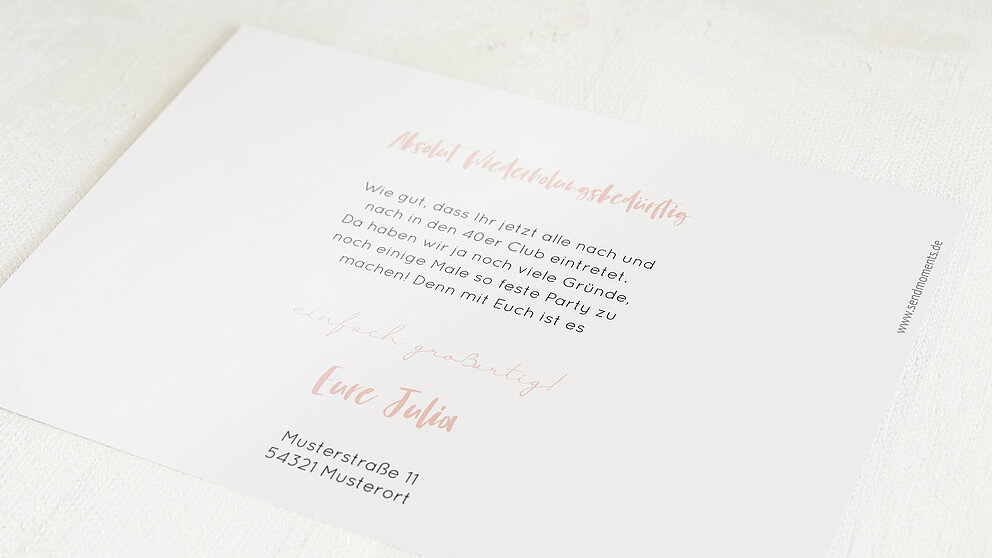 Absolut Wiederholungsbedürftig
Wie gut, dass Ihr jetzt alle nach und
nach in den 40er Club eintretet.
Da haben wir ja noch viele Gründe,
noch einige Male so feste Party zu
machen! Denn mit Euch ist es
einfach großartig!
Eure Julia
Musterstraße 11
54321 Musterort
www.sendmoments.de